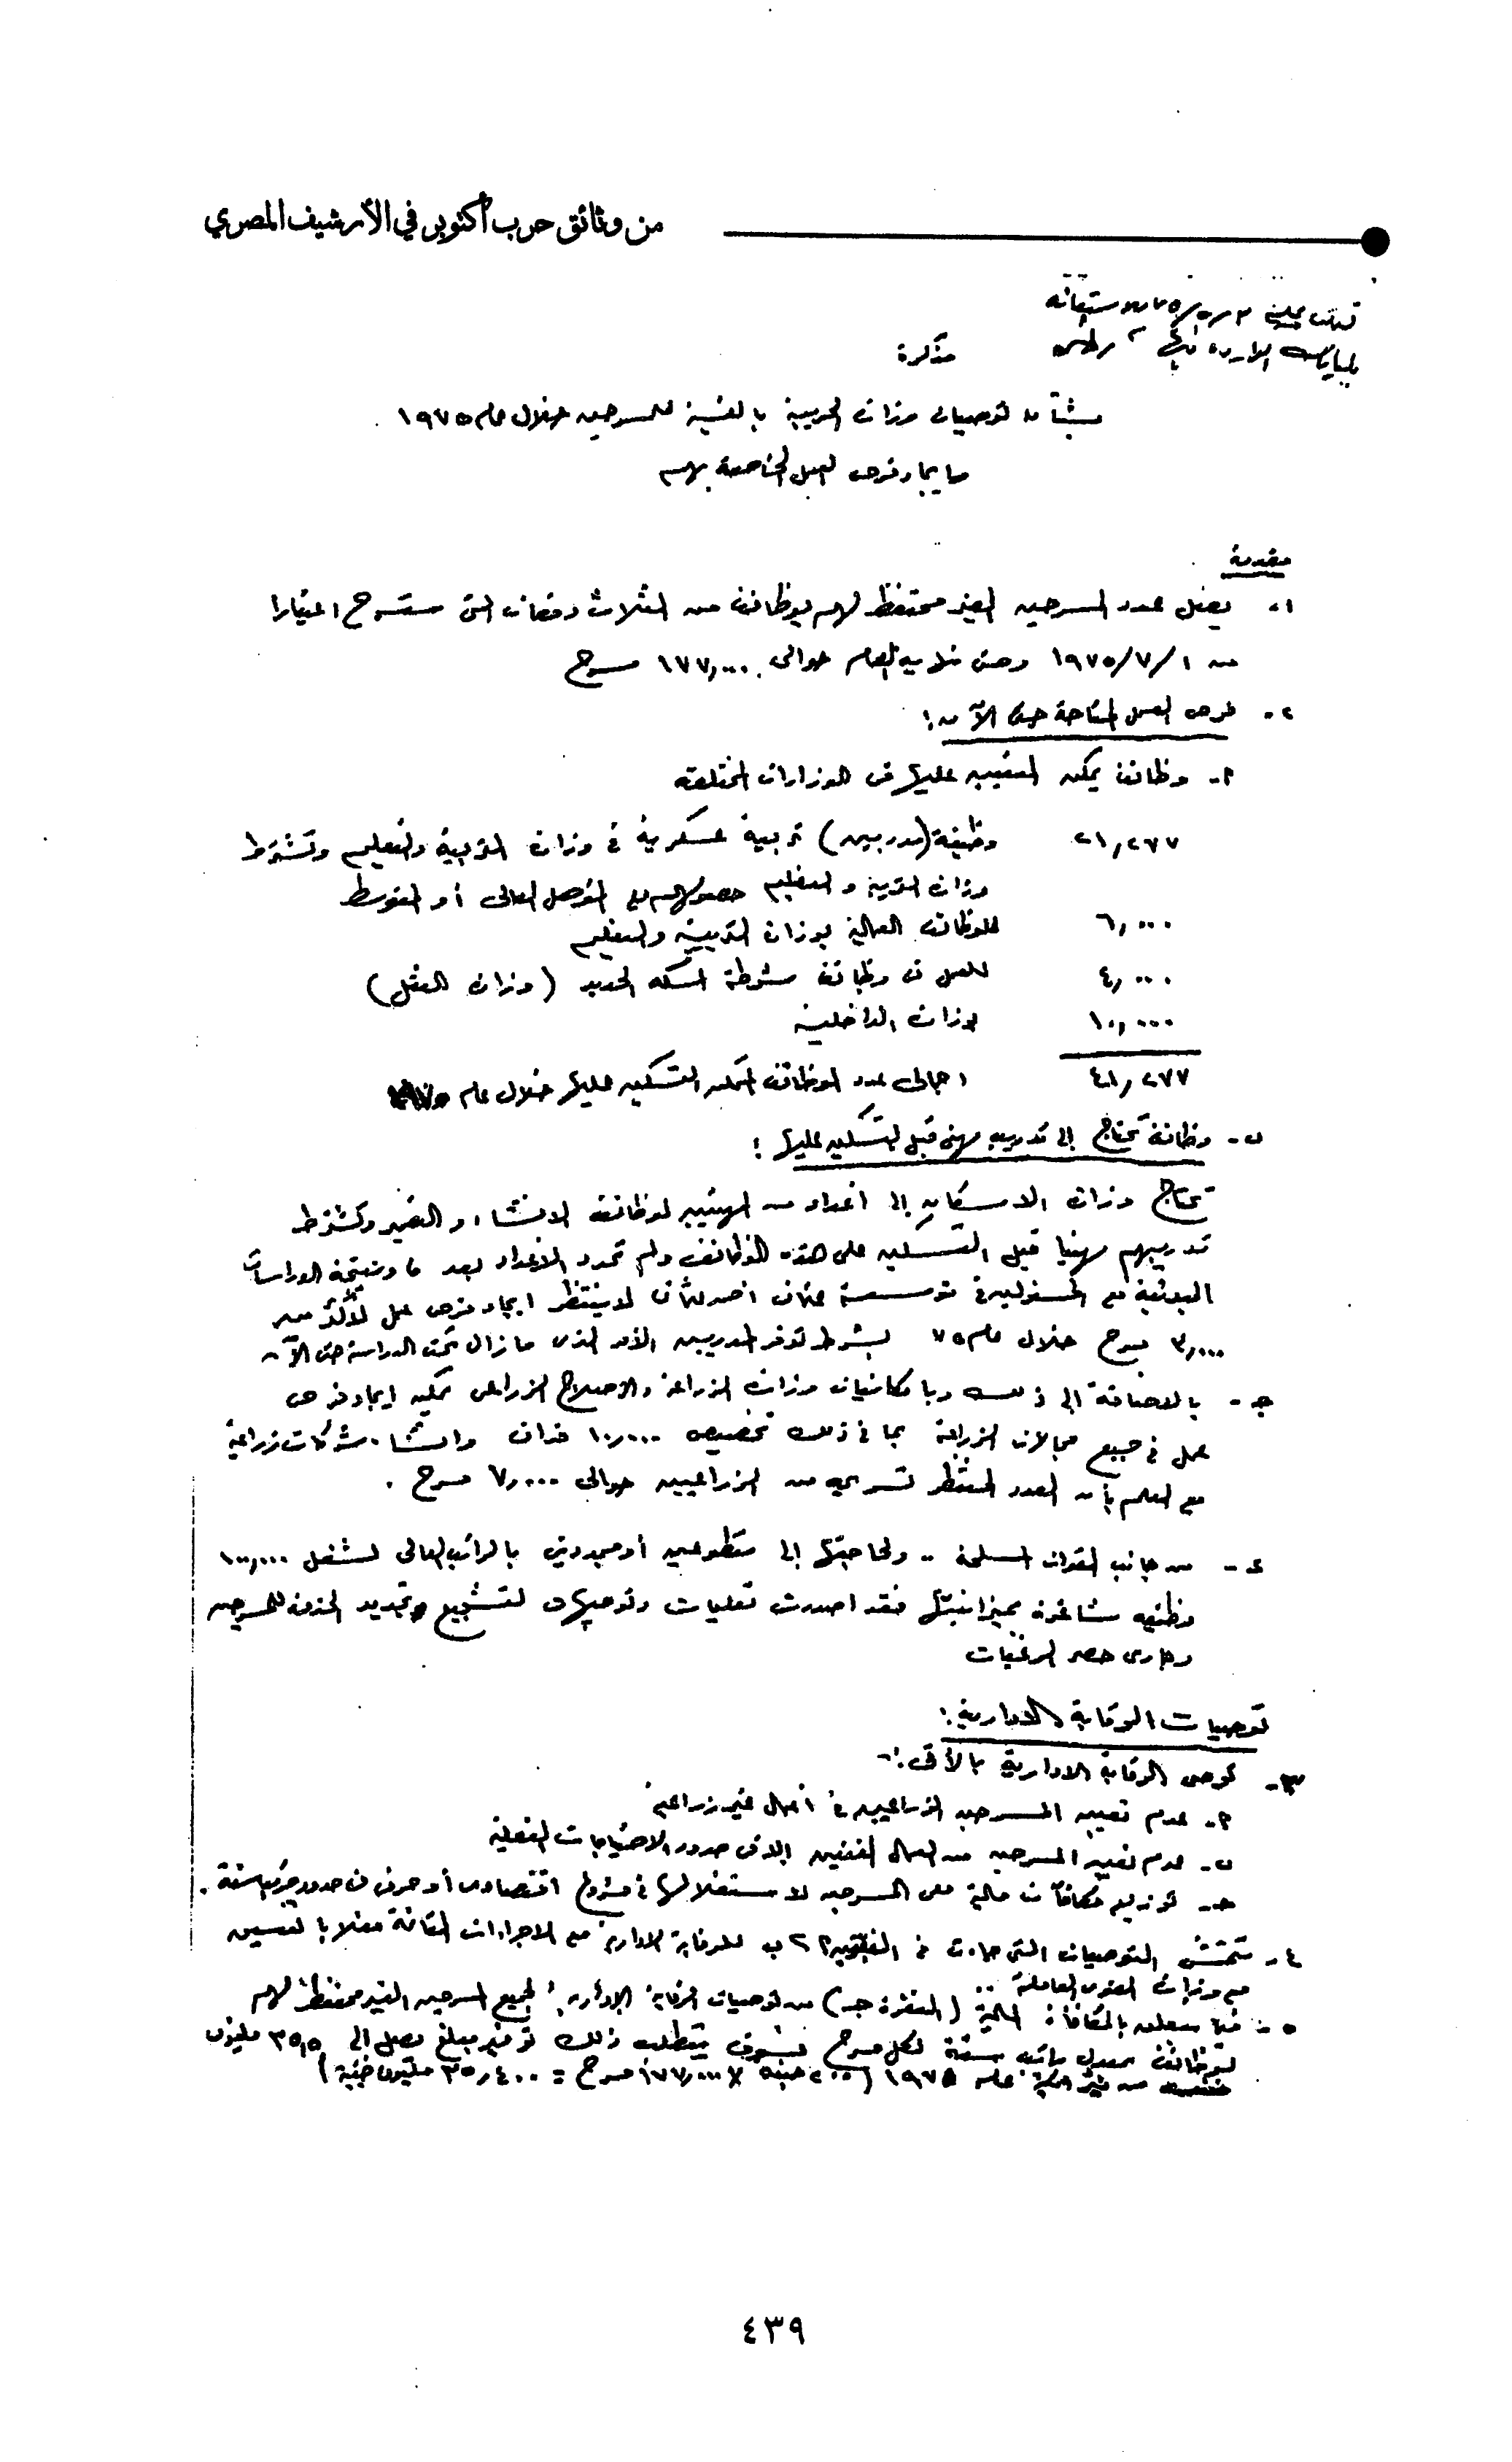 من وثائق حرب أكتوبر في الأرشيف المصري
مذكرة
بشأن توصيات وزارة الحربية بالنسبة للمسرحين خلال عام ١٩٧٥
وايجاد فرص العمل الخاصة بهم
مقدمة
١- يصل عدد المسرحين الغير محتفظ لهم بوظائف من الثلاث دفعات التى ستسرح اعتبارا
من ١٩٧٥/٧/١ وحتى العام حوالى ١٧٧,٠٠٠ مسرح
٢- فرص العمل المتاحة حتى الآن :
أ- وظائف يمكن التعيين عليها فى الوزارات المختلفة
٢١,٢٧٧ وظيفة (مدربين) تربية عسكرية فى وزارة التربية والتعليم وتشترط
وزارة التربية والتعليم حصولهم على المؤهل العالى أو المتوسط
٦,٠٠٠ للوظائف العمالية بوزارة التربية والتعليم
٤,٠٠٠ للعمل فى وظائف شرطة السكة الحديد (وزارة النقل)
١٠,٠٠٠ بوزارة الداخلية
٤١,٢٧٧ اجمالى عدد الوظائف الممكن التسكين عليها خلال عام ١٩٧٥
ب- وظائف تحتاج إلى تدريب مهنى قبل التسكين عليها :
تحتاج وزارة الاسكان إلى أعداد من المهنيين لوظائف الانشاء والتعمير وتشترط
تدريبهم مهنيا قبل التسكين على هذه الوظائف ولم تحدد الاعداد بعد ونتيجة الدراسات
المبدئية مع المسئولين فى مؤسسة عثمان أحمد عثمان لا ينتظر ايجاد فرص عمل لأكثر من
٣,٠٠٠ مسرح خلال عام ٧٥ بشرط توفر المدربين الأمر الذى ما زال تحت الدراسة حتى الآن
جـ- بالاضافة الى ذلك وبامكانيات وزارة الزراعة والاصلاح الزراعى يمكن ايجاد فرص
عمل فى جميع مجالات الزراعة بما فى ذلك تخصيص ١٠,٠٠٠ فدان وانشاء شركات زراعية
مع العلم بأن العدد المنتظر تسريحه من الزراعيين حوالى ٧٠,٠٠٠ مسرح .
د- من جانب القوات المسلحة .. ولحاجتها إلى متطوعين أو مجددين بالراتب العالى لشغل ١٠٠,٠٠٠
وظيفة شاغرة بميزانيتها فقد اصدرت تعليمات وتوجيهات لتشجيع وتجديد الخدمة للمسرحين
وجارى حصر الرغبات
توصيات الرقابة الادارية :
٣- توصى الرقابة الادارية بالآتى :-
أ- عدم تعيين المسرحين الزراعيين فى أعمال غير زراعية
ب- عدم تعيين المسرحين من العمال الفنيين إلا فى حدود الاحتياجات الفعلية
جـ- توزيع مكافآت مالية على المسرحين لاستغلالها فى مشروع اقتصادى أو حرفى فى حدود
٤- تتمشى التوصيات التى جاءت فى الفقرتين أ ، ب للرقابة الادارية مع الاجراءات القائمة فعلا بالتنسيق
مع وزارة القوى العاملة ..
٥- فيما يتعلق بالمكافأة المالية (الفقرة جـ) من توصيات الرقابة الإدارية لجميع المسرحين الغير محتفظ لهم
بوظائف بمعدل راتب سنة لكل مسرح فسوف يتطلب ذلك توفير مبلغ يصل إلى ٣٥,٥ مليون
جنيه من ميزانية عام ١٩٧٥ (٢٠٠ جنيه × ١٧٧,٠٠٠ مسرح = ٣٥,٤٠٠ مليون جنية)
٤٣٩